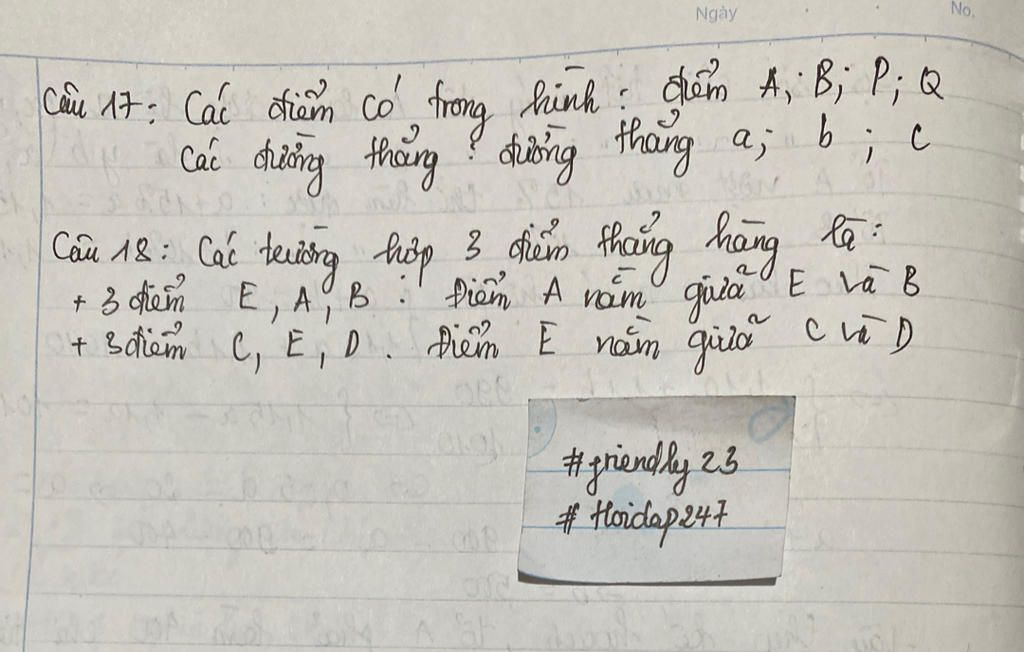 Ngày
No.
Câu 17: Các điểm có trong hình: điểm A; B; P; Q
Các đường thẳng: đường thẳng a; b; c
Câu 18: Các trường hợp 3 điểm thẳng hàng là:
+ 3 điểm E, A, B: Điểm A nằm giữa E và B
+ 3 điểm C, E, D: Điểm E nằm giữa C và D
#friendly 23
# Hoidap247